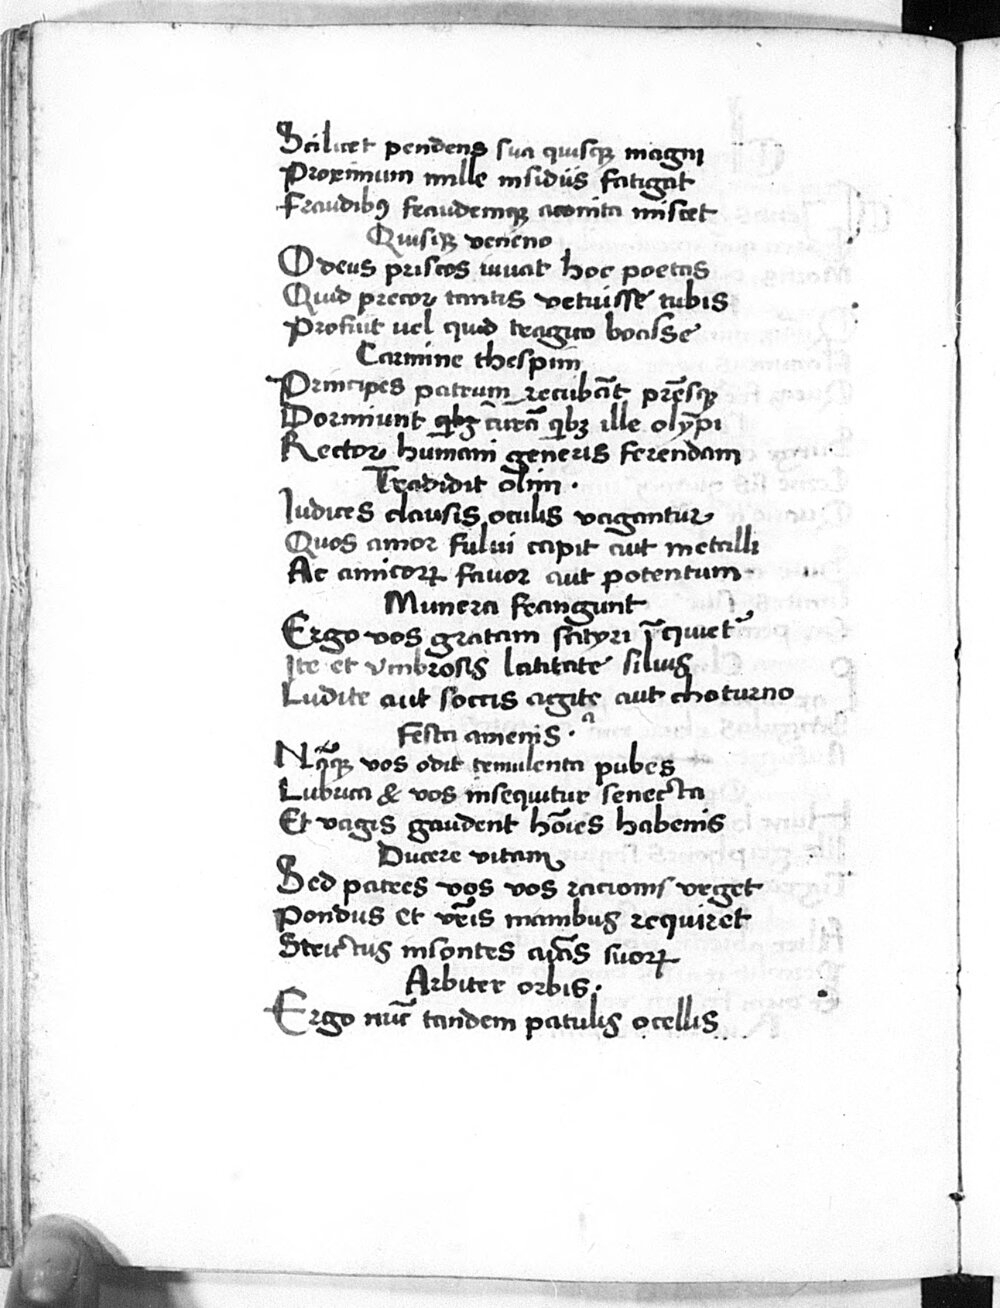 Scilicet pendens sua quisq̃ magni
Proximum mille insidiis fatigat
Fraudibꝰ fraudemq̃ aconita miscet
Quisiq̃ veneno
O deus priscos iuuat hoc poetas
Quid precor tantis vetuisse tubis
Profuit uel quid tragico boasse
Carmine thespim
Principes patrum recubãt prẽsq̃
Dormiunt qꝫbꝫ curã qꝫbꝫ ille olỹpi
Rector humani generis ferendam
Tradidit olim ·
Iudices clausis oculis vagantur
Quos amor fului capit aut metalli
Ac amicoꝝ fauor aut potentum
Munera frangunt
Ergo vos gratam satyri q̃quiet
Ite et vmbrosis latitate siluis
Ludite aut soccis agite aut choturno
Festa amenis ·
Nãq̃ vos odit temulenta pubes
Lubrica & vos insequitur senecta
Et vagis gaudent hõies habenis
Ducere vitam
Sed patres vos vos racionis vrget
Pondus et vr̃is manibus requiret
Strictus insontes aĩas suoꝝ
Arbiter orbis ·
Ergo nũc tandem patulis ocellis